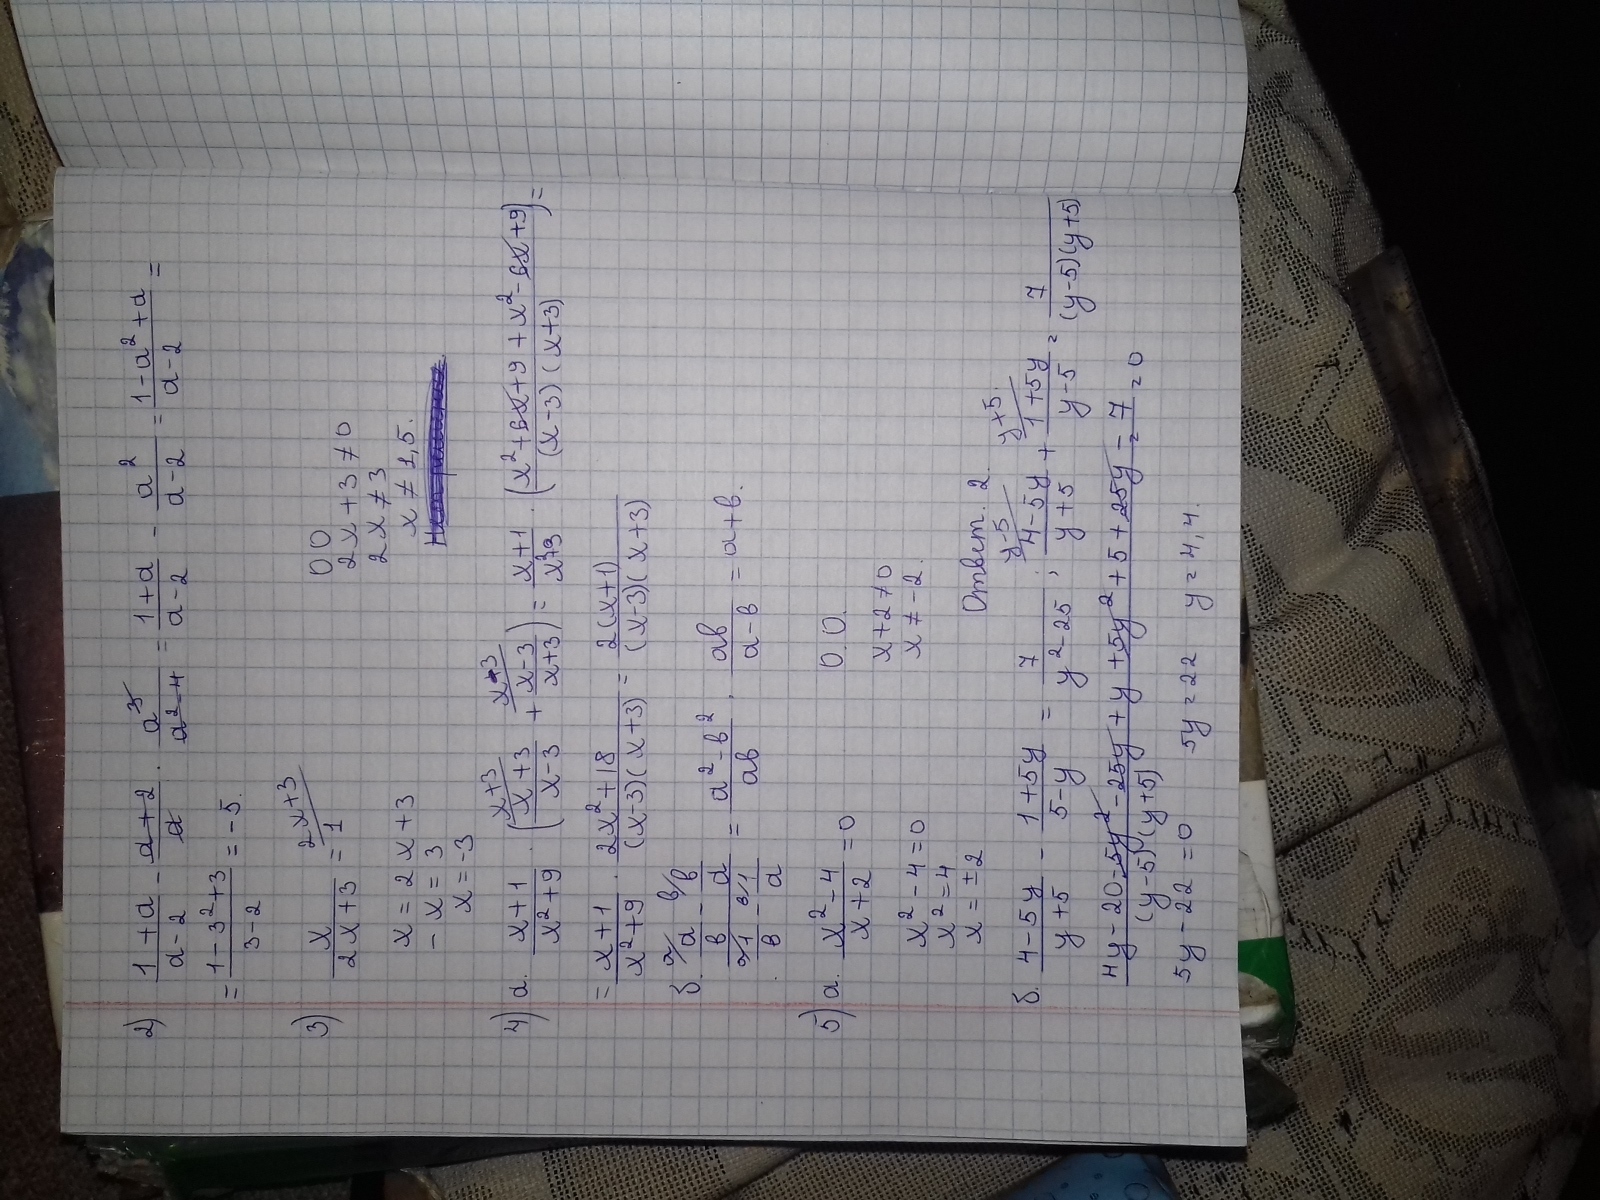 2) (1+a)/(a-2) - (a+2)/a · a³/(a²-4) = (1+a)/(a-2) - a²/(a-2) = (1-a²+a)/(a-2) =
= (1-3²+3)/(3-2) = -5.
3) x/(2x+3) = 1 2x+3
x = 2x+3
-x = 3
x = -3
ОО
2x+3≠0
2x≠3
x≠1,5.
4) а. (x+1)/(x²+9) · ((x+3)/(x-3) + (x-3)/(x+3)) = (x+1)/(x²+9) · (x²+6x+9+x²-6x+9)/((x-3)(x+3)) =
= (x+1)/(x²+9) · (2x²+18)/((x-3)(x+3)) = 2(x+1)/((x-3)(x+3))
б. (a/в - в/a)/(1/в - 1/a) = (a²-в²)/aв · aв/(a-в) = a+в.
5) а. (x²-4)/(x+2) = 0
x²-4=0
x²=4
x=±2
О.О.
x+2≠0
x≠-2.
Ответ. 2.
б. (4-5y)/(y+5) - (1+5y)/(5-y) = 7/(y²-25) ; (4-5y)/(y+5) + (1+5y)/(y-5) = 7/((y-5)(y+5))
(4y-20-5y²-25y+y+5y²+5+25y-7)/((y-5)(y+5)) = 0
5y-22=0 5y=22 y=4,4.